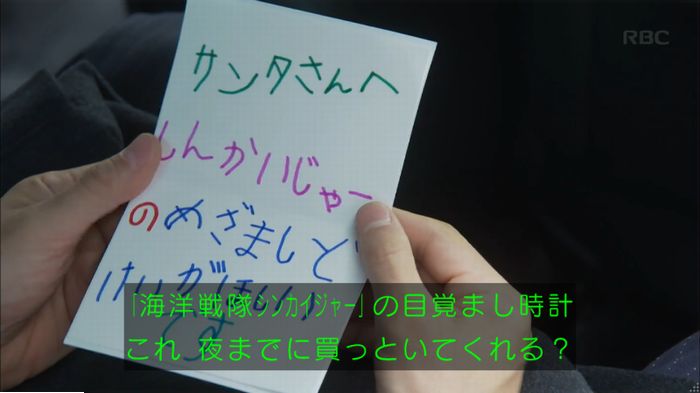 RBC
サンタさんへ
しんかいじゃー
のめざましど
けいがほしい
です
「海洋戦隊シンカイジャー」の目覚まし時計
これ 夜までに買っといてくれる？